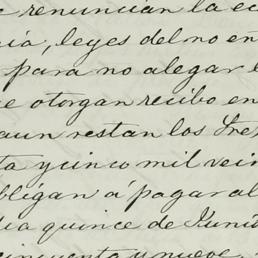 e renuncian la e
ia, leyes del no en
para no alegar l
e otorgan recibo en
aun restan los tre
ta y cinco mil vein
bligan á pagar al
ia quince de Junio
cincuenta y nueve.